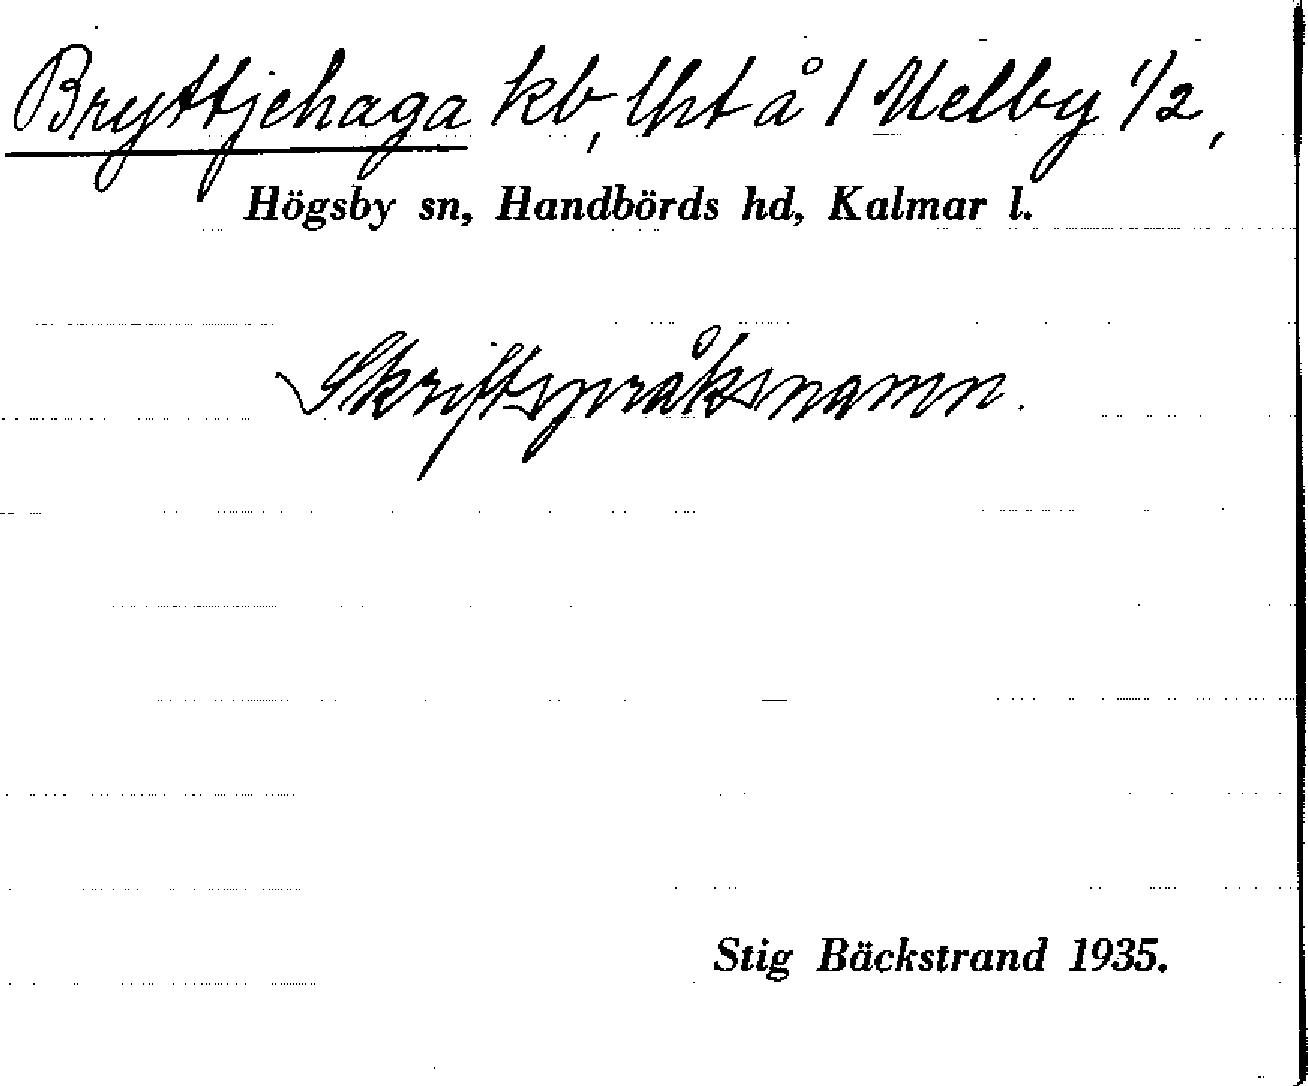 Bryttjehaga kb, lht å 1 Melby 1/2,
Högsby sn, Handbörds hd, Kalmar l.
Skriftspråksnamn.
Stig Bäckstrand 1935.